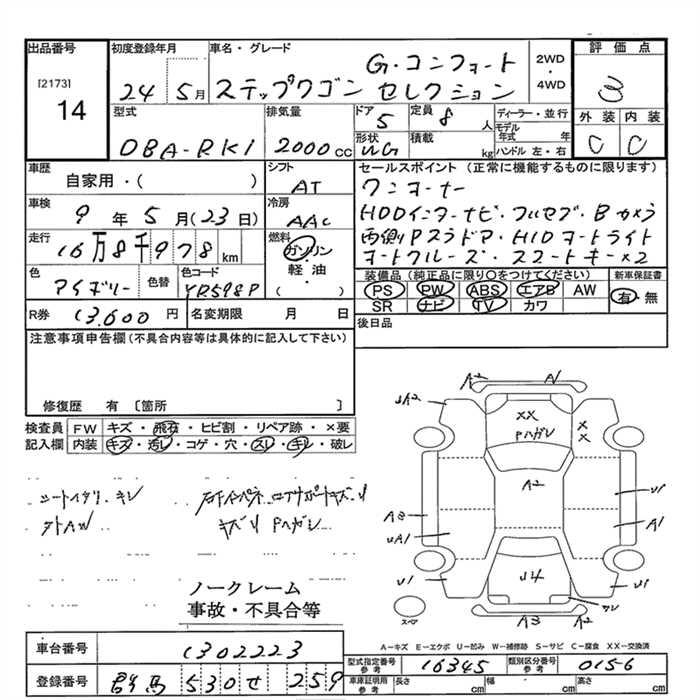 出品番号
[2173]
14
初度登録年月
24 5月
車名・グレード
G・コンフォート
ステップワゴン セレクション
2WD
・
4WD
評価点
3
型式
DBA-RK1
排気量
2000cc
ドア
5
定員
8人
形状
WG
積載
kg
ディーラー・並行
モデル年式 年
ハンドル 左・右
外装 内装
C C
車歴
自家用・( )
シフト
AT
車検
9年5月(23日)
冷房
AAC
走行
16万8千978km
燃料
ガソリン
軽油
( )
色
アイボリー
色替
色コード
YR598P
R券 13,600円
名変期限 月 日
セールスポイント(正常に機能するものに限ります)
ワンオーナー
HDDインターナビ・フルセグ・Bカメラ
両側Pスラドア・HIDオートライト
オートクルーズ・スマートキー×2
装備品(純正品に限り○をつけてください)
PS PW ABS エアB AW
SR ナビ TV カワ
新車保証書
有・無
後日品
注意事項申告欄(不具合内容等は具体的に記入して下さい)
修復歴 有 〔箇所 〕
検査員記入欄
FW キズ・飛石・ヒビ割・リペア跡・×要
内装 キズ・汚レ・コゲ・穴・スレ・キレ・破レ
キズU Pハガレ
ノークレーム
事故・不具合等
A2 A1
UA2
XX
Pハガレ
X
X
A2
A3
UA1
U1
A1
U1
U4
U1
サビ
A3 A2
スペア
A-キズ E-エクボ U-凹み W-補修跡 S-サビ C-腐食 XX-交換済
車台番号 1302223
登録番号 群馬 530 せ 259
型式指定番号
参考
16345
類別区分番号
参考
0156
車庫証明用
参考
長さ cm
幅 cm
高さ cm